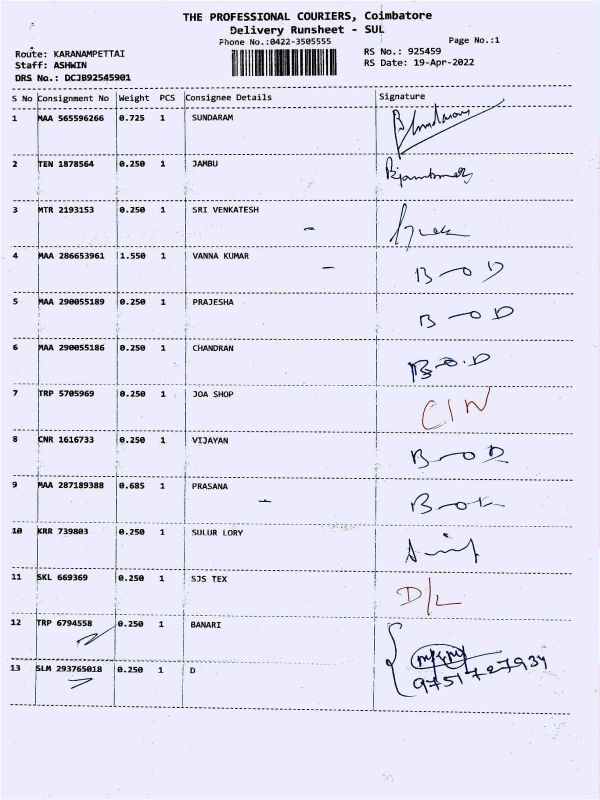 THE PROFESSIONAL COURIERS, Coimbatore
Delivery Runsheet - SUL
Phone No.:0422-3505555
Page No.:1
Route: KARANAMPETTAI
RS No.: 925459
Staff: ASHWIN
RS Date: 19-Apr-2022
DRS No.: DCJB92545901
S No Consignment No Weight PCS Consignee Details Signature
1 MAA 565596266 0.725 1 SUNDARAM
2 TEN 1878564 0.250 1 JAMBU
3 MTR 2193153 0.250 1 SRI VENKATESH
4 MAA 286653961 1.550 1 VANNA KUMAR B-OD
5 MAA 290055189 0.250 1 PRAJESHA B-OD
6 MAA 290055186 0.250 1 CHANDRAN B-O.D
7 TRP 5705969 0.250 1 JOA SHOP CIN
8 CNR 1616733 0.250 1 VIJAYAN B-OD
9 MAA 287189388 0.685 1 PRASANA
10 KRR 739803 0.250 1 SULUR LORY
11 SKL 669369 0.250 1 SJS TEX D/L
12 TRP 6794558 0.250 1 BANARI
13 SLM 293765018 0.250 1 D 9751727934